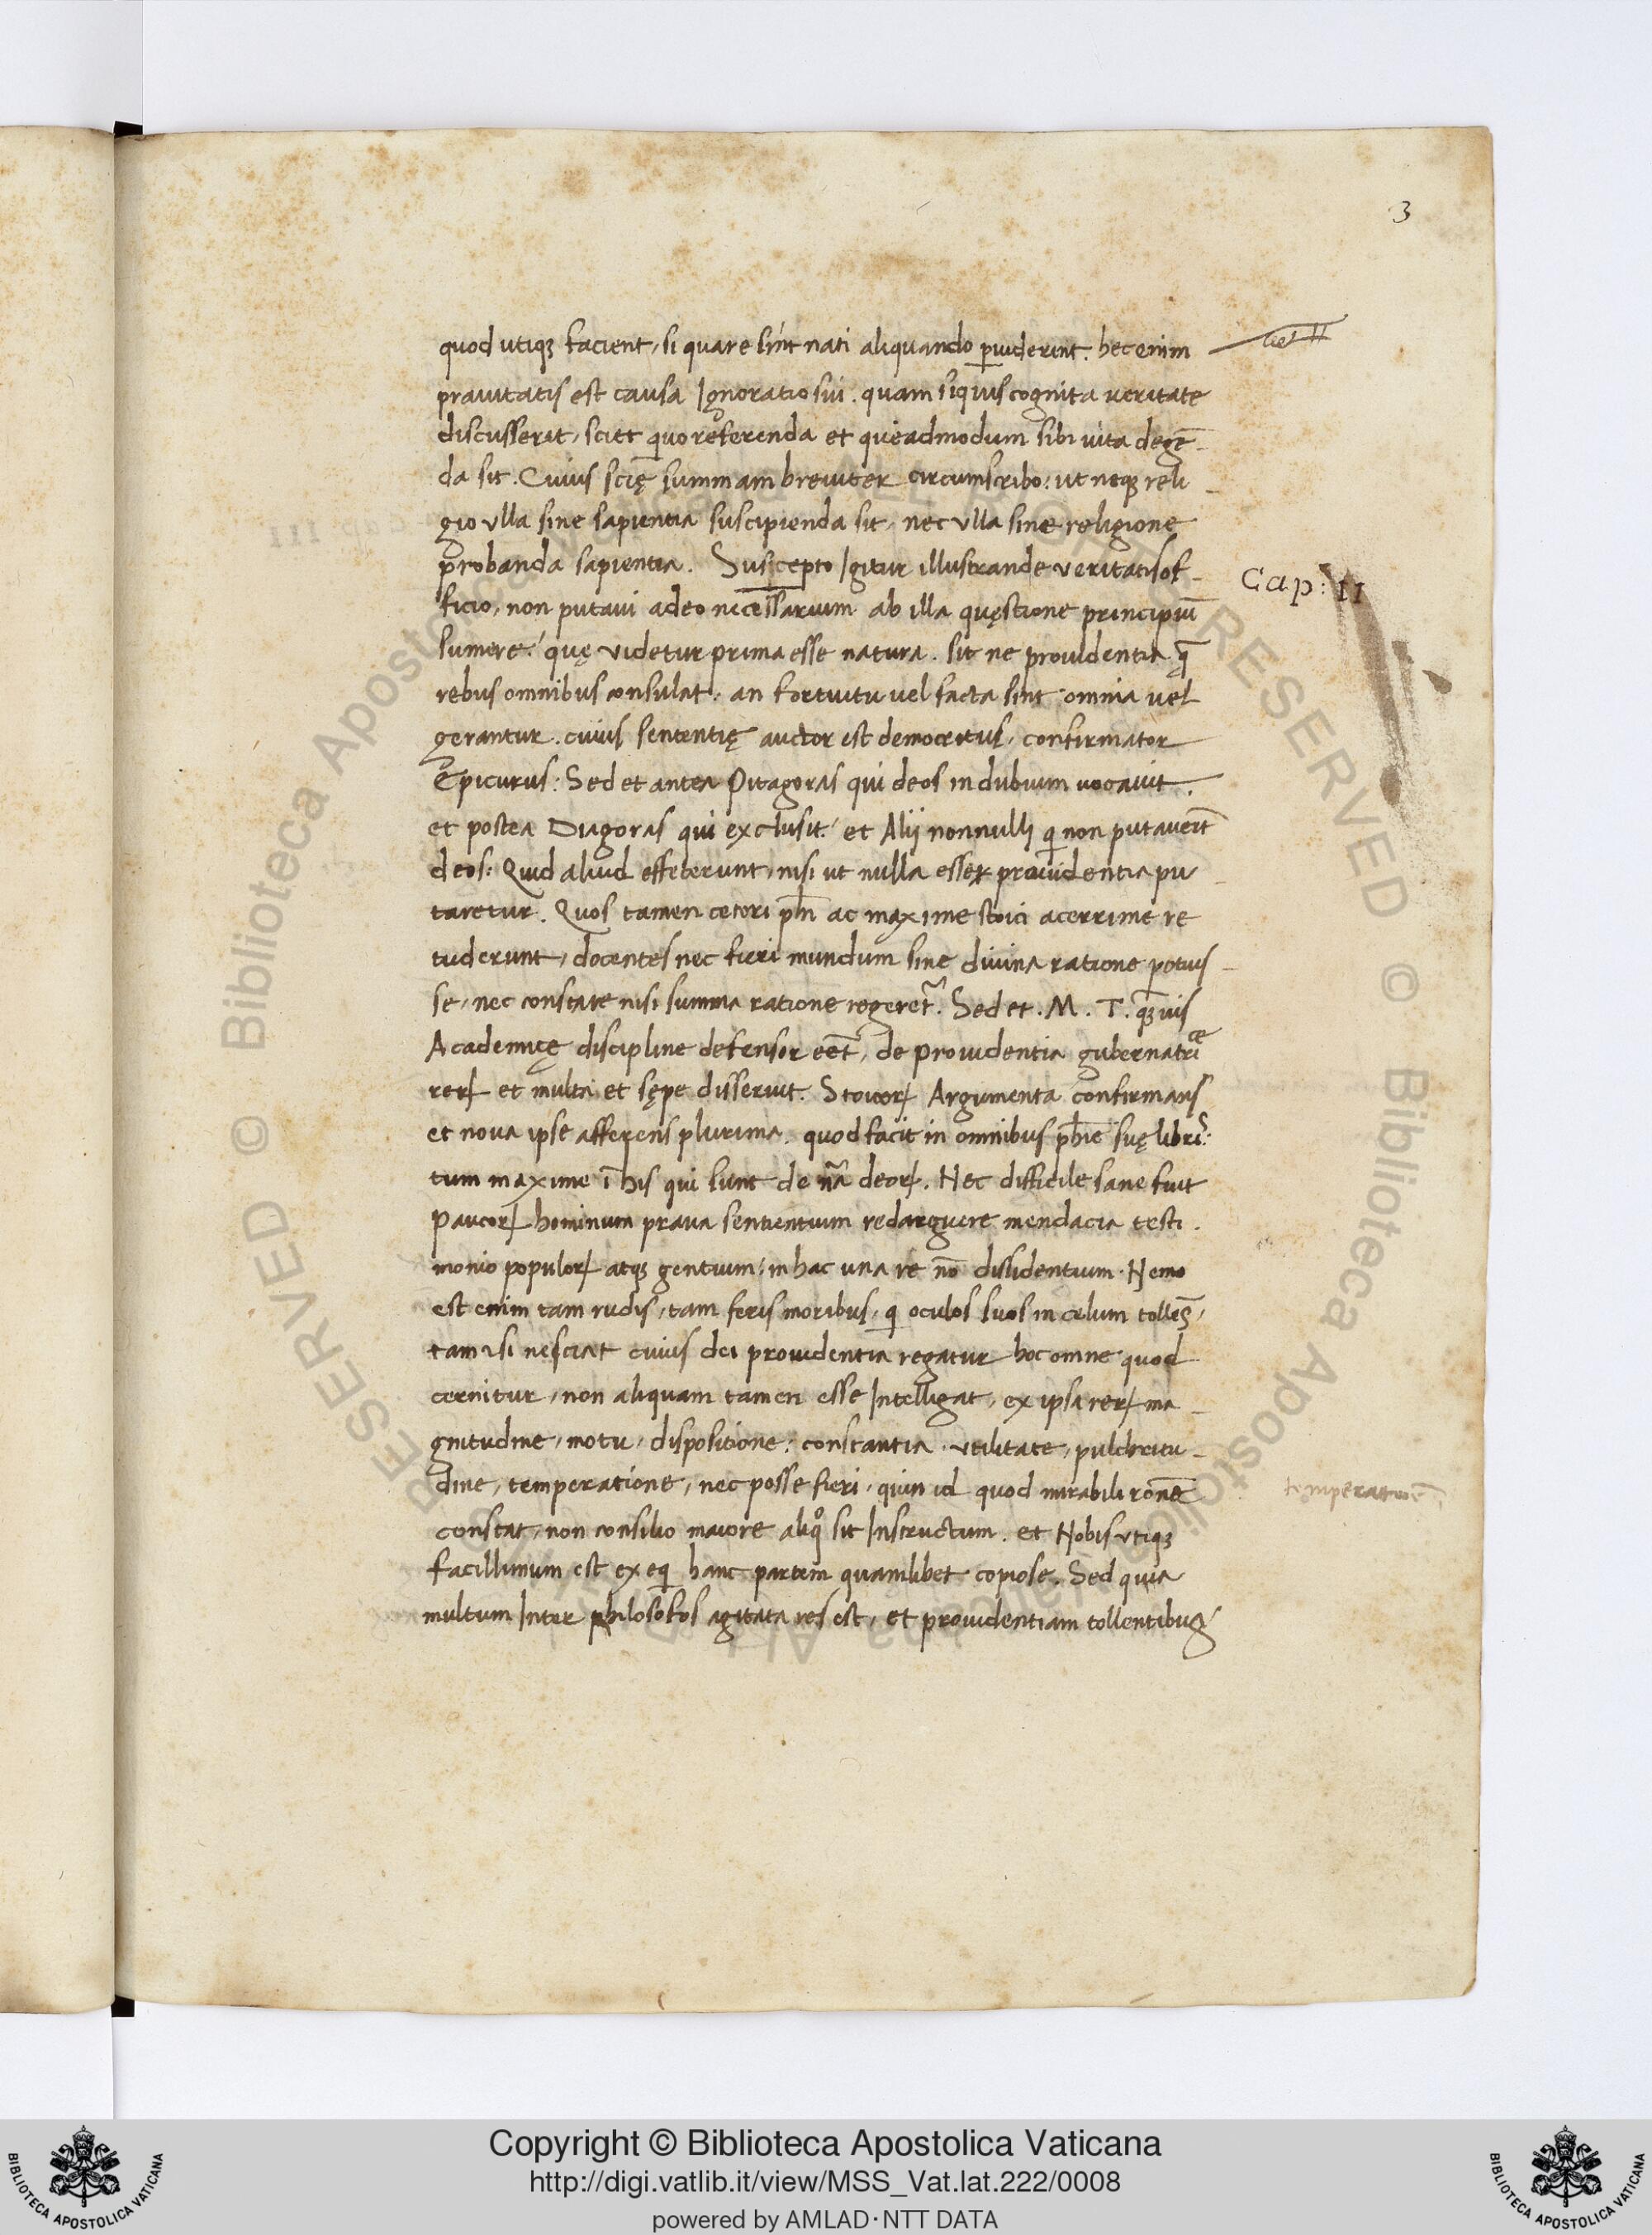 3
quod utiqꝫ facient, si quare sint nati aliquando ꝑuiderint. hec enim
prauitatis est causa Ignoratio sui. quam siquis cognita ueritate
discusserit, sciet quo referenda et quēadmodum sibi uita degē-
da sit. Cuius scię summam breuiter circumscribo: ut neqꝫ reli-
gio ulla sine sapientia suscipienda sit, nec ulla sine religione
probanda sapientia. Suscepto Igitur illustrande veritatis of-
Cap: II
ficio, non putaui adeo necessarium ab illa quęstione principiū
sumere: quę videtur prima esse natura. sit ne prouidentia q̄
rebus omnibus consulat: an fortuitu uel facta sint omnia uel
gerantur. cuius sententię auctor est democritus, confirmator
Epicurus: Sed et antea Pitagoras qui deos in dubium uocauit.
et postea Diagoras qui exclusit: et Alij nonnulli qi non putauerūt
deos: Quid aliud effecerunt, nisi ut nulla esset prouidentia pu-
taretur. Quos tamen ceteri pħi ac maxime stoici acerrime re
tuderunt, docentes nec fieri mundum sine diuina ratione potuis-
se, nec constare nisi summa ratione regeret̄. Sed et. M. T. qꝫuis
Academicę discipline defensor eēt, de prouidentia gubernatrice
reꝝ et multa et sępe disseruit. Stoicoꝝ Argumenta confirmans
et noua ipse afferens plurima. quod facit in omnibus pħie suę libris:
tum maxime ī his qui sunt de nā deoꝝ. Nec difficile sane fuit
paucoꝝ hominum praua sentientium redarguere mendacia testi.
monio populoꝝ atqꝫ gentium, in hac una re nō dissidentium. Nemo
est enim tam rudis, tam feris moribus, qi oculos suos in celum tollēs,
tam & si nesciat cuius dei prouidentia regatur hoc omne quod
cernitur, non aliquam tamen esse Intelligat, ex ipsa reꝝ ma-
gnitudine, motu, dispositione, constantia. utilitate, pulchritu-
dine, temperatione, nec posse fieri, quin id quod mirabili rōne
temperation
constat, non consilio maiore aliqͦ sit Instructum. et Nobis utiqꝫ
facillimum est exeqi hanc partem quamlibet copiose. Sed quia
multum Inter philosofos agitata res est, et prouidentiam tollentibus
Copyright © Biblioteca Apostolica Vaticana
http://digi.vatlib.it/view/MSS_Vat.lat.222/0008
powered by AMLAD·NTT DATA
BIBLIOTECA APOSTOLICA VATICANA
BIBLIOTECA APOSTOLICA VATICANA